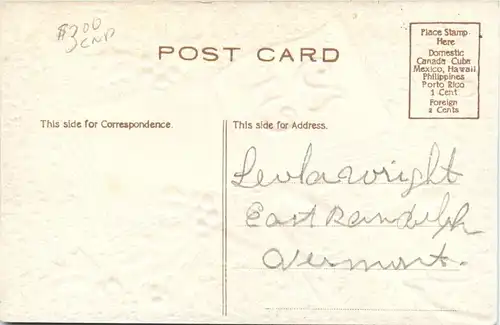 $200
CND
POST CARD
Place Stamp
Here
Domestic
Canada Cuba
Mexico, Hawaii
Philippines
Porto Rico
1 Cent
Foreign
2 Cents
This side for Correspondence.
This side for Address.
Leula Wright
East Randolph
Vermont.